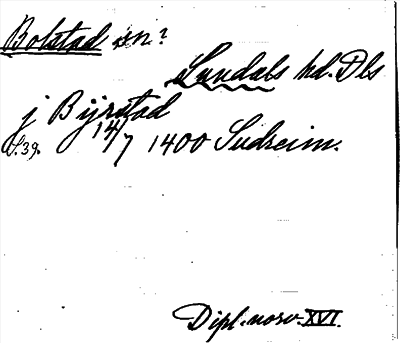 Bolstad sn?
Sundals hd. Dls
j Bijrstad
S. 39. 14/7 1400 Sudreim.
Dipl. norv. XVI.